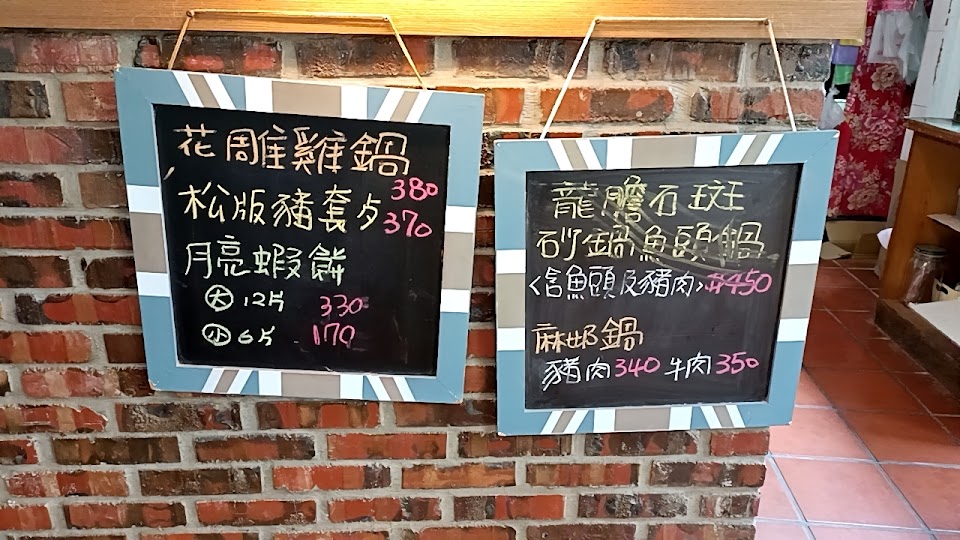 花雕雞鍋
380
松版豬套夕370
月亮蝦餅
大 12片 330
小 6片 170
龍膽石斑
砂鍋魚頭鍋
<含魚頭及豬肉>#450
麻奶鍋
豬肉340 牛肉350